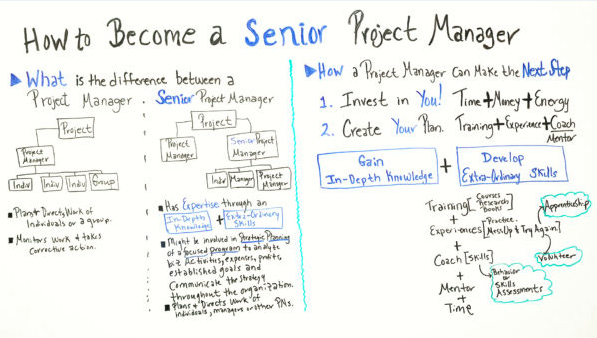 How to Become a Senior Project Manager
What is the difference between a
Project Manager . Senior Project Manager
Project
Project Manager
Indiv Indiv Indiv Group
Plans & Directs Work of
Individuals or a group.
Monitors Work & takes
corrective action.
Project
Project Manager
Senior Project Manager
Indiv Manager Project Manager
Has Expertise through an
In-Depth Knowledge + Extra-Ordinary Skills
Might be involved in Strategic Planning
of a focused program to analyze
biz activities, expenses, profits
established goals and
Communicate the strategy
throughout the organization.
Plans & Directs Work of
individuals, managers or other PMs.
How a Project Manager Can Make the Next Step
1. Invest in You! Time + Money + Energy
2. Create Your Plan. Training + Experience + Coach
Mentor
Gain
In-Depth Knowledge
+
Develop
Extra-Ordinary Skills
Training [Courses
Research
Books
+
Experiences [Practice.
Mess Up & Try Again]
+
Coach [Skills]
+
Mentor
+
Time
Apprenticeship
Volunteer
Behavior
or
Skills
Assessments